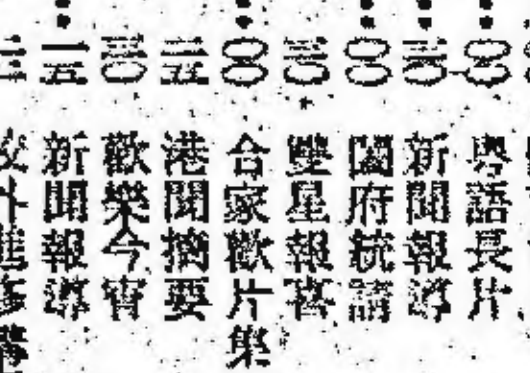 ：〇〇粵語長片
：三〇新聞報導
：〇〇闔府統請
三〇雙星報喜
：〇〇合家歡片集
二五港聞摘要
三〇歡樂今宵
：一五新聞報導